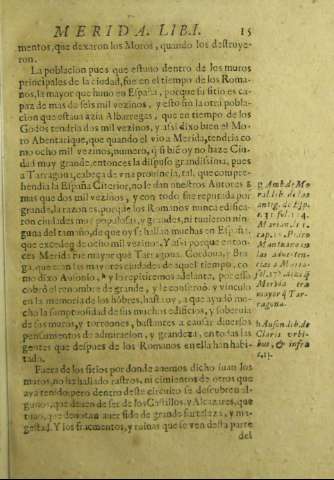 MERIDA. LIB. I. 15
mentos, que dexaron los Moros, quando los destruye-
ron.
La poblacion pues que estuuo dentro de los muros
principales de la ciudad, fue en el tiempo de los Roma-
nos, la mayor que huuo en España, porque su sitio es ca-
paz de mas de seis mil vezinos, y esto sin la otra pobla-
cion que estaua azia Albarregas, que en tiempo de los
Godos tendria dos mil vezinos, y assi dixo bien el Mo-
ro Abentarique, que quando el vio a Merida, tendria co
mo ocho mil vezinos, numero, q̃ si biẽ oy no haze Ciu-
dad muy grande, entonces la dispuso grandissima, pues
a Tarragona, cabeça de vna prouincia, tal, que compre-
hendia la España Citerior, no le dan nuestros Autores g
mas que dos mil vezinos, y con todo fue reputada por
grande, la razon es, porque los Romanos nunca edifica-
ron ciudades muy populosas, y grandes, ni tuuieron nin-
guna del tamaño, de que oy se hallan muchas en España,
que exceden de ocho mil vezinos. Y assi porque enton-
ces Merida fue mayor que Tarragona, Cordoua, y Bra-
ga, que eran las mayores ciudades de aquel tiempo, co-
mo dixo Ausonio, h y las repitiremos adelante, por esso
cobrò el renombre de grande, y le conseruò, y vinculò
en la memoria de los hõbres, hasta oy, a que ayudò mu-
cho la sumptuosidad de sus muchos edificios, y soberuia
de sus muros, y torreones, bastantes a causar diuersos
pensamientos de admiracion, y grandeza, en todas las
gentes que despues de los Romanos en ella han habi-
tado.
Fuera de los sitios por donde auemos dicho iuan los
muros, no ha hallado rastros, ni cimientos de otros que
aya tenido, pero dentro deste circuito se descubren al-
gunos, que deuen de ser de los Castillos, y Alcaçares, que
tuuo, que denotan auer sido de grande fortaleza, y ma-
gestad. Y los fracmentos, y ruinas que se ven desta parte
del
g Amb. de Mo
ral. lib. de las
antig. de Esp.
Marian. lib.
Merida era
mayor q̃ Tar-
ragona.
h Auson. lib. de
Claris vrbi-
bus, & infra